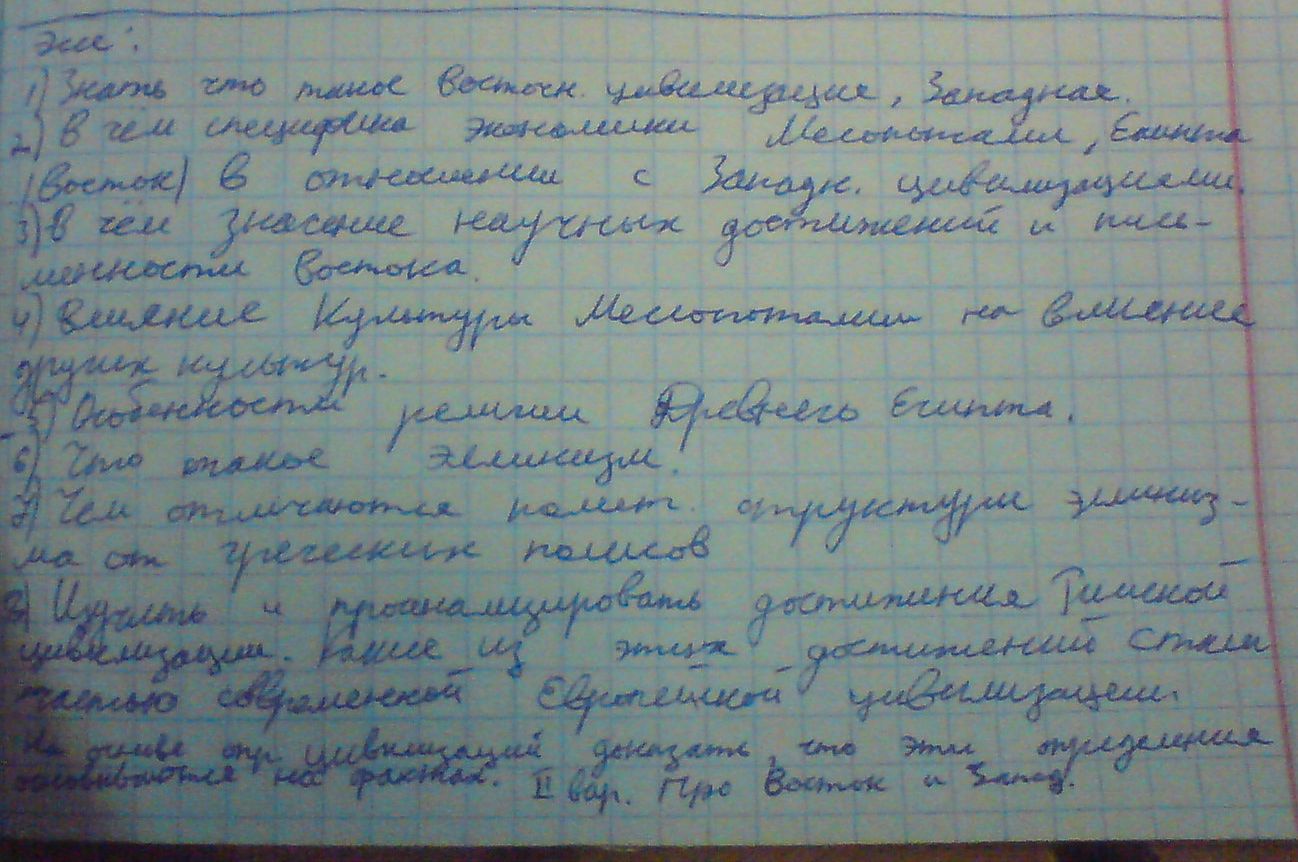 1) Знать что такое Восточн. цивилизация, Западная.
2) В чём специфика экономики Месопотамии, Египта
(Восток) в отношении с Западн. цивилизациями.
3) В чём значение научных достижений и пись-
менности Востока.
4) Влияние Культуры Месопотамии на влияние
других культур.
5) Особенности религии Древнего Египта.
6) Что такое эллинизм.
7) Чем отличаются полит. структуры эллиниз-
ма от греческих полисов
8) Изучить и проанализировать достижения Римской
цивилизации. Какие из этих достижений стали
частью современной Европейской цивилизации.
На основе опр. цивилизаций доказать, что эти определения
основываются на фактах. II вар. Про Восток и Запад.